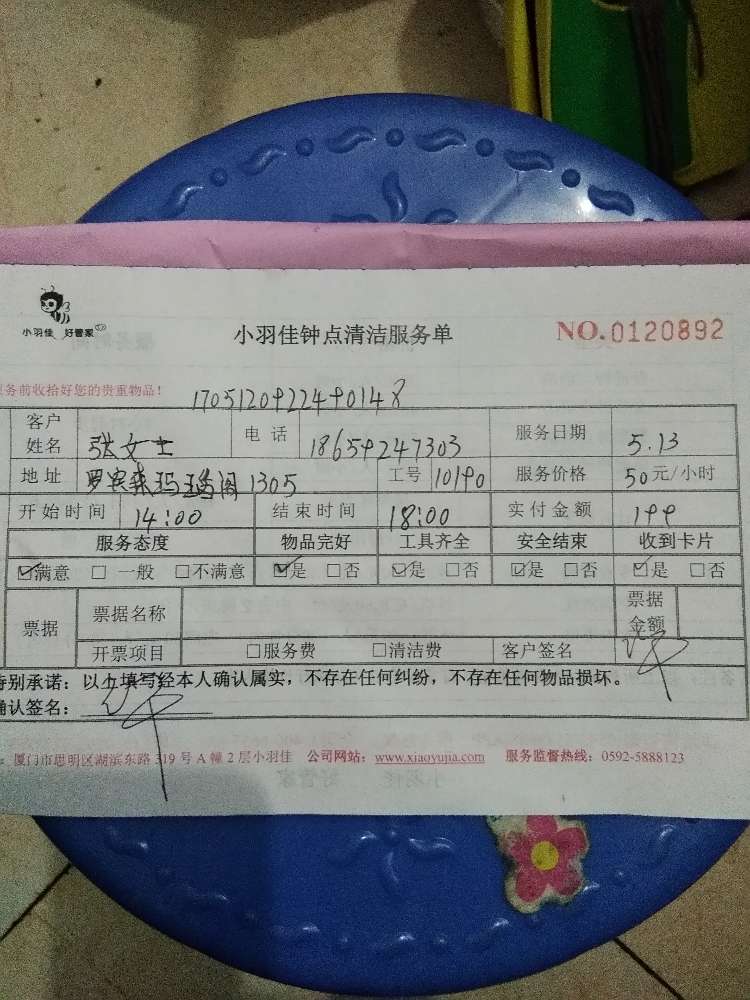 小羽佳 好管家
小羽佳钟点清洁服务单
NO.0120892
服务前收拾好您的贵重物品!
客户姓名 张女士 电话 18659247303 服务日期 5.13
地址 1305 工号 10190 服务价格 50元/小时
开始时间 14:00 结束时间 18:00 实付金额 199
服务态度 物品完好 工具齐全 安全结束 收到卡片
☑满意 □一般 □不满意 ☑是 □否 ☑是 □否 ☑是 □否 ☑是 □否
票据 票据名称 票据金额
开票项目 □服务费 □清洁费 客户签名
特别承诺:以上填写经本人确认属实,不存在任何纠纷,不存在任何物品损坏。
确认签名:
厦门市思明区湖滨东路319号A幢2层小羽佳 公司网站:www.xiaoyujia.com 服务监督热线:0592-5888123